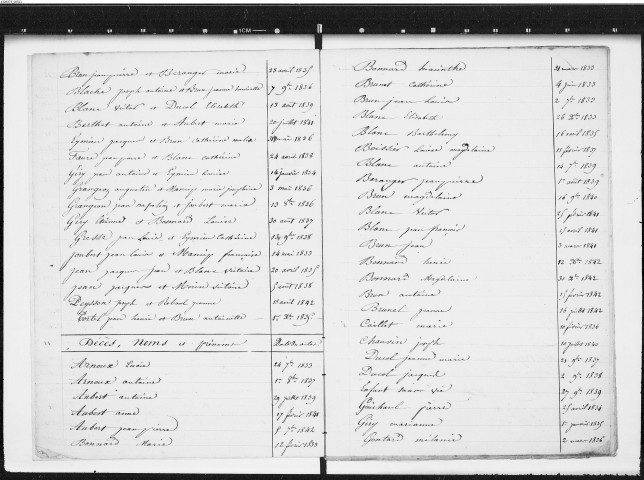 Blanc jean pierre et Beranger marie 28 avril 1835
Blache joseph antoine et Brun jeanne henriette 7 9bre 1836
Blanc Victor et Ducol Elisabeth 13 août 1839
Barthet antoine et Aubert marie 20 juillet 1841
Eymieu jacques et Brun Catherine 1836
Favre jean pierre et Blanc catherine 24 1838
Géry jean antoine et Eymieu Louise 14 janvier 1834
Grangeon augustin et marie joséphine 3 mai 1836
Grangeon jean napoléon et Joubert marie 13 8bre 1836
Géry Etienne et Bonnard Louise 30 août 1837
jean Louis et Eymieu Catherine 9bre 1838
Joubert jean Louis et françoise 14 mai 1833
jean jacques et Blanc victoire 20 avril 1835
jean jacques et victoire août 1838
Peysson joseph et jeanne 11 avril 1842
jean Louis et Brun antoinette
Décès, Noms et prénoms Date des actes
Arnoux Marie 26 7bre 1833
Arnoux antoine 17 8bre 1837
Aubert antoine 29 juillet 1839
Aubert aimé 17 février 1841
Aubert jean pierre 8 7bre 1842
Bonnard Marie 12 février 1833
Bonnard hiacinthe 31 mars 1833
Brunet Catherine 4 juin 1833
Brun jean Louis 2 7bre 1833
Blanc Elisabeth 26 Xbre 1833
Blanc Barthelemy 16 avril 1835
Louise magdelaine 11 février 1837
Blanc antoine 14 7bre 1839
Beranger jean pierre 1er août 1839
Brun magdelaine 16 9bre 1840
Blanc Victor 25 février 1841
Blanc jean françois 15 avril 1841
Brun jean 3 mars 1841
Bonnard henri 12 Xbre 1842
Bonnard Magdelaine 30 Xbre 1842
Brun antoine 15 février 1842
Brunel jeanne 18 juillet 1842
Caillet marie 10 février 1836
Chauvin joseph 10 juillet 1840
Ducol jeanne marie 21 9bre 1837
Ducol jacques 2 9bre 1838
Enfant sans vie 27 9bre 1839
Guichard pierre 25 avril 1834
Géry marianne 1835
Gontard mélanie 2 mars 1836